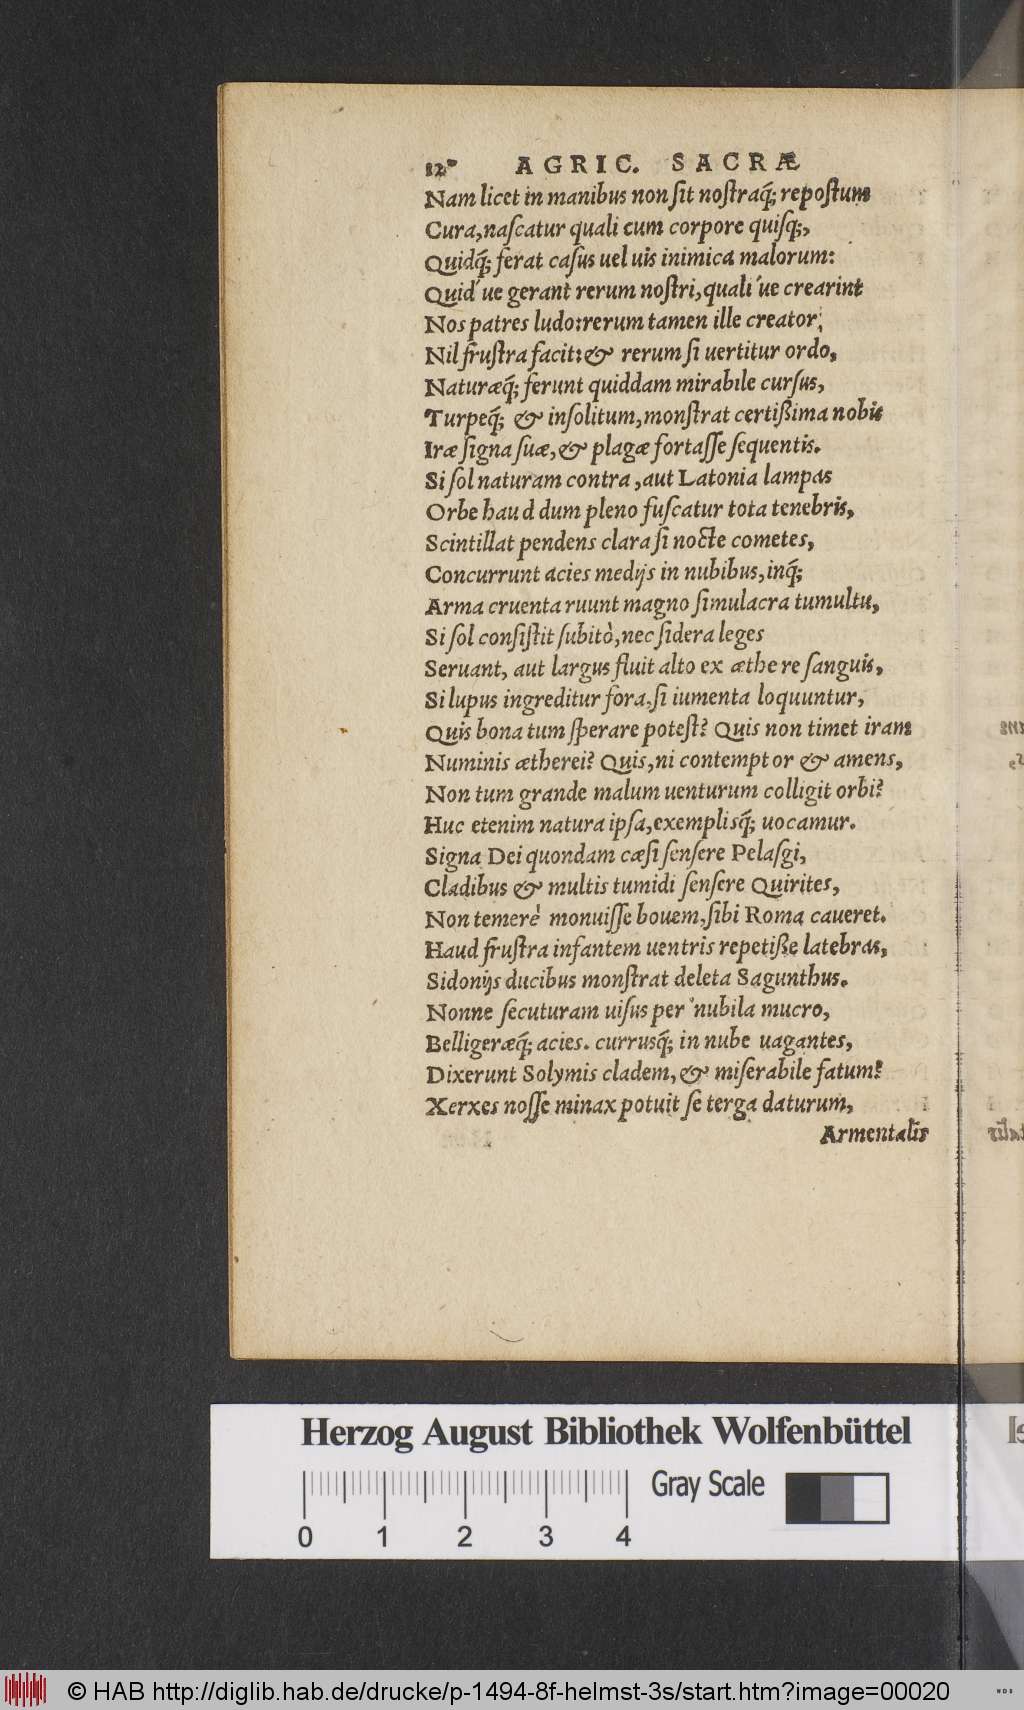 12 AGRIC. SACRÆ
Nam licet in manibus non ſit noſtraq́; repoſtum
Cura, naſcatur quali cum corpore quiſq;,
Quidq́; ferat caſus uel uis inimica malorum:
Quid ́ue gerant rerum noſtri, quali ́ue crearint
Nos patres ludo: rerum tamen ille creator,
Nil fruſtra facit: & rerum ſi uertitur ordo,
Naturæq́; ferunt quiddam mirabile curſus,
Turpeq́; & inſolitum, monſtrat certißima nobis
Iræ ſigna ſuæ, & plagæ fortaſſe ſequentis.
Si ſol naturam contra, aut Latonia lampas
Orbe hau d dum pleno fuſcatur tota tenebris,
Scintillat pendens clara ſi nocte cometes,
Concurrunt acies medijs in nubibus, inq́;
Arma cruenta ruunt magno ſimulacra tumultu,
Si ſol conſiſtit ſubitò, nec ſidera leges
Seruant, aut largus fluit alto ex æthe re ſanguis,
Si lupus ingreditur fora, ſi iumenta loquuntur,
Quis bona tum ſperare poteſt? Quis non timet iram
Numinis ætherei? Quis, ni contempt or & amens,
Non tum grande malum uenturum colligit orbi?
Huc etenim natura ipſa, exemplisq́; uocamur.
Signa Dei quondam cæſi ſenſere Pelaſgi,
Cladibus & multis tumidi ſenſere Quirites,
Non temerè monuiſſe bouem, ſibi Roma caueret.
Haud fruſtra infantem uentris repetiße latebras,
Sidonijs ducibus monſtrat deleta Sagunthus.
Nonne ſecuturam uiſus per nubila mucro,
Belligeræq́; acies. currusq́; in nube uagantes,
Dixerunt Solymis cladem, & miſerabile fatum?
Xerxes noſſe minax potuit ſe terga daturum,
Armentalis
Herzog August Bibliothek Wolfenbüttel
Gray Scale
0 1 2 3 4
© HAB http://diglib.hab.de/drucke/p-1494-8f-helmst-3s/start.htm?image=00020